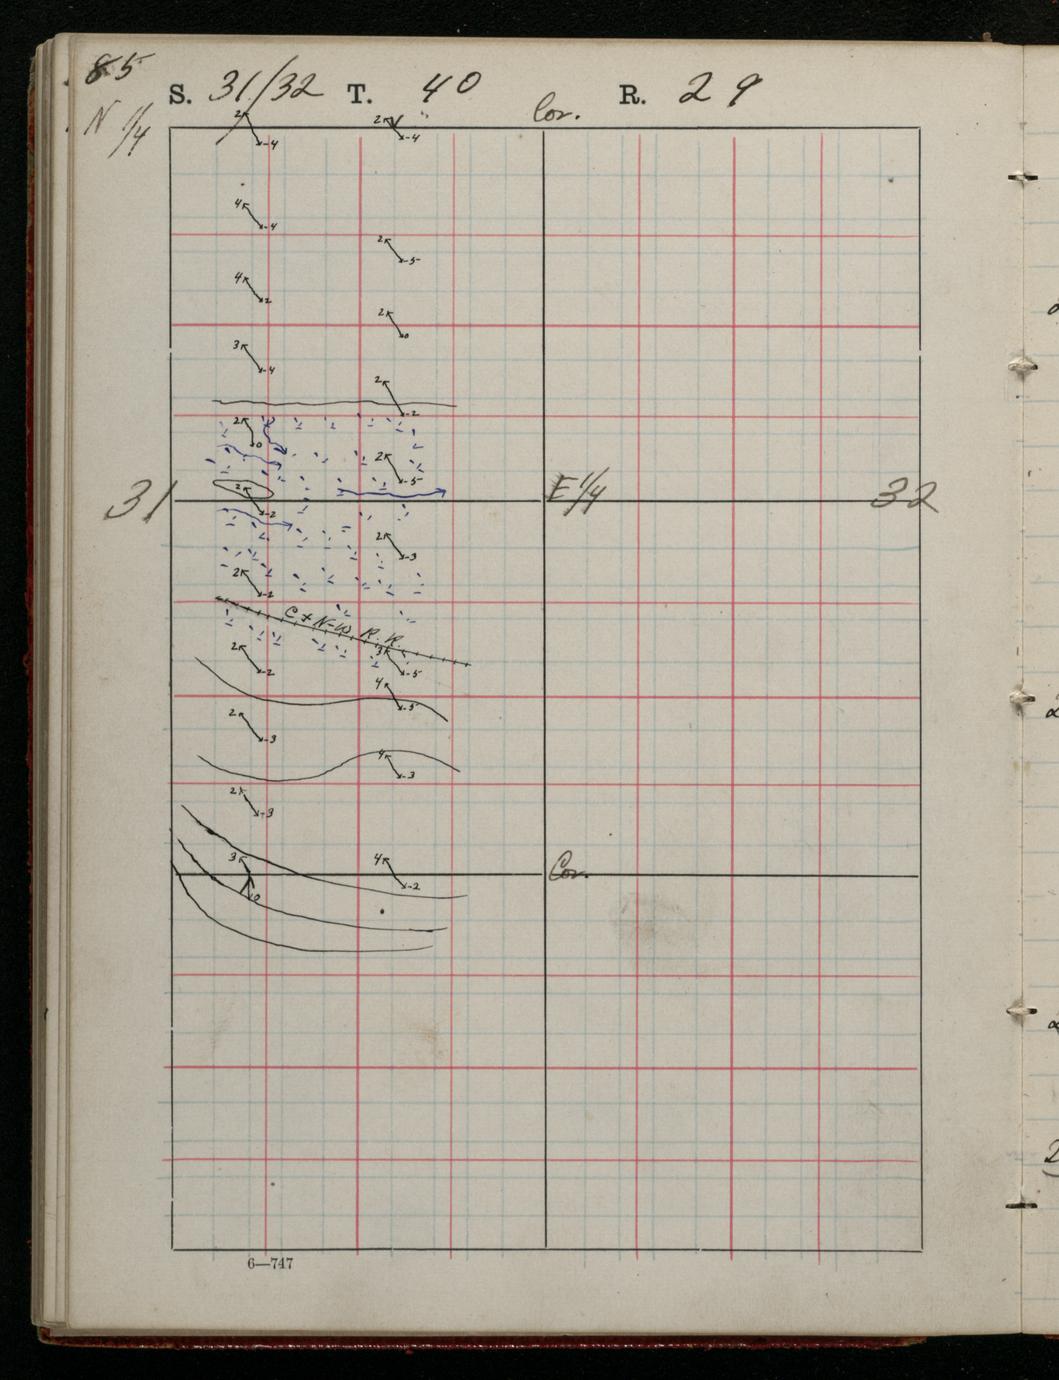 85
S. 31/32 T. 40 R. 29
N 1/4
Cor.
2 -4 2 -4
4 -4
2 -5
4 2
2 0
3 -4
2 -2
2 0
2 -5
31 E 1/4 32
2 -2
2 -3
2 -2
C + N-W R. R.
2 -2 3 -5
4 -5
2 -3
4 -3
2 -3
3 0 4 -2 Cor.
6—747